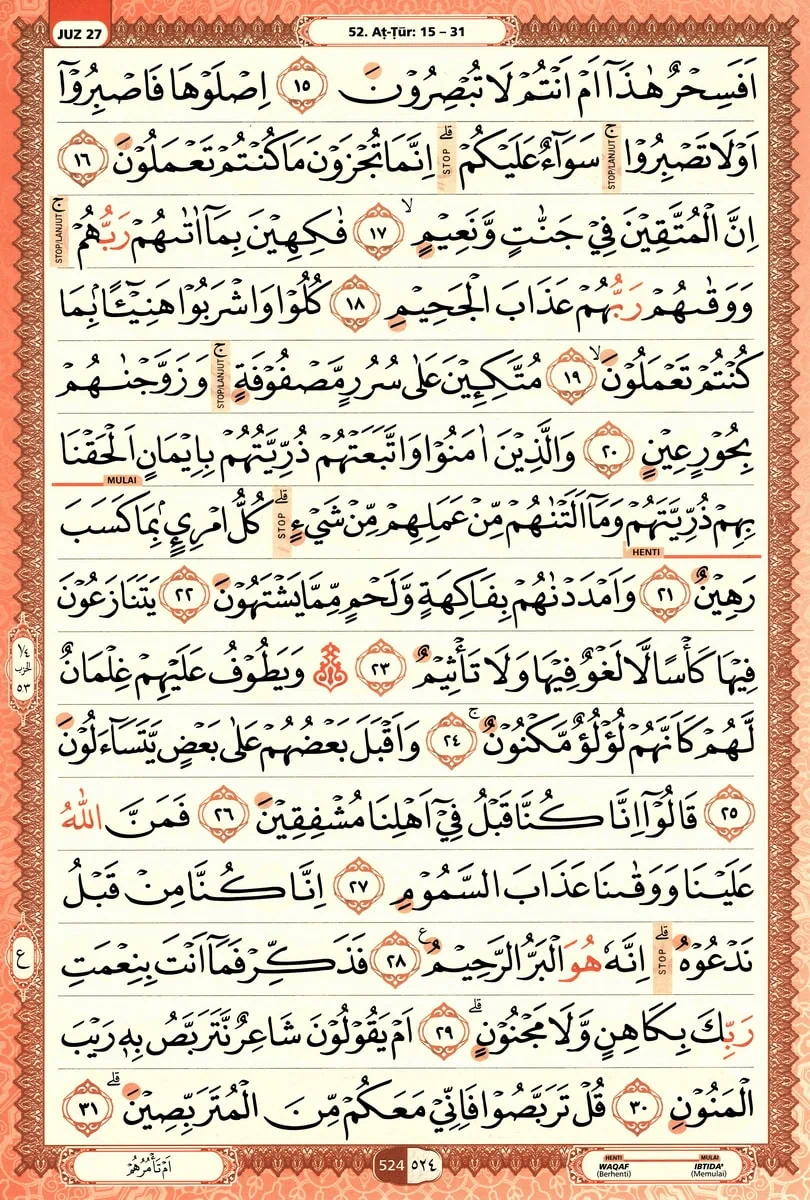 JUZ 27
52. Aṭ-Ṭūr: 15 – 31
اَفَسِحْرٌ هٰذَآ اَمْ اَنْتُمْ لَا تُبْصِرُوْنَ ١٥ اِصْلَوْهَا فَاصْبِرُوْٓا
اَوْلَا تَصْبِرُوْا ۚ STOP/LANJUT سَوَاۤءٌ عَلَيْكُمْ ۗ STOP اِنَّمَا تُجْزَوْنَ مَا كُنْتُمْ تَعْمَلُوْنَ ١٦
اِنَّ الْمُتَّقِيْنَ فِيْ جَنّٰتٍ وَّنَعِيْمٍۙ ١٧ فٰكِهِيْنَ بِمَآ اٰتٰىهُمْ رَبُّهُمْ ۚ STOP/LANJUT
وَوَقٰىهُمْ رَبُّهُمْ عَذَابَ الْجَحِيْمِ ١٨ كُلُوْا وَاشْرَبُوْا هَنِيْۤـًٔا ۢبِمَا
كُنْتُمْ تَعْمَلُوْنَۙ ١٩ مُتَّكِـِٕيْنَ عَلٰى سُرُرٍ مَّصْفُوْفَةٍ ۚ STOP/LANJUT وَزَوَّجْنٰهُمْ
بِحُوْرٍ عِيْنٍ ٢٠ وَالَّذِيْنَ اٰمَنُوْا وَاتَّبَعَتْهُمْ ذُرِّيَّتُهُمْ بِاِيْمَانٍ اَلْحَقْنَا
MULAI
بِهِمْ ذُرِّيَّتَهُمْ وَمَآ اَلَتْنٰهُمْ مِّنْ عَمَلِهِمْ مِّنْ شَيْءٍ ۗ STOP كُلُّ امْرِئٍ ۢبِمَا كَسَبَ
HENTI
رَهِيْنٌ ٢١ وَاَمْدَدْنٰهُمْ بِفَاكِهَةٍ وَّلَحْمٍ مِّمَّا يَشْتَهُوْنَ ٢٢ يَتَنَازَعُوْنَ
فِيْهَا كَأْسًا لَّا لَغْوٌ فِيْهَا وَلَا تَأْثِيْمٌ ٢٣ وَيَطُوْفُ عَلَيْهِمْ غِلْمَانٌ
لَّهُمْ كَاَنَّهُمْ لُؤْلُؤٌ مَّكْنُوْنٌۚ ٢٤ وَاَقْبَلَ بَعْضُهُمْ عَلٰى بَعْضٍ يَّتَسَاۤءَلُوْنَ
٢٥ قَالُوْٓا اِنَّا كُنَّا قَبْلُ فِيْٓ اَهْلِنَا مُشْفِقِيْنَ ٢٦ فَمَنَّ اللّٰهُ
عَلَيْنَا وَوَقٰىنَا عَذَابَ السَّمُوْمِ ٢٧ اِنَّا كُنَّا مِنْ قَبْلُ
نَدْعُوْهُ ۗ STOP اِنَّهٗ هُوَ الْبَرُّ الرَّحِيْمُ ࣖ ٢٨ فَذَكِّرْ فَمَآ اَنْتَ بِنِعْمَتِ
رَبِّكَ بِكَاهِنٍ وَّلَا مَجْنُوْنٍۗ ٢٩ اَمْ يَقُوْلُوْنَ شَاعِرٌ نَّتَرَبَّصُ بِهٖ رَيْبَ
الْمَنُوْنِ ٣٠ قُلْ تَرَبَّصُوْا فَاِنِّيْ مَعَكُمْ مِّنَ الْمُتَرَبِّصِيْنَۗ ٣١
١/٤ الحزب ٥٣
ع
اَمْ تَأْمُرُهُمْ
524 ٥٢٤
HENTI MULAI
WAQAF IBTIDA'
(Berhenti) (Memulai)